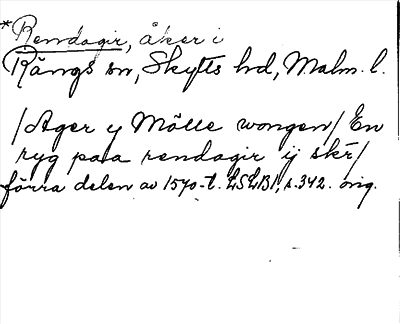 *Rendagir, åker i
Rängs sn, Skytts hd, Malm. l.
/Ager y Mölle wongen/ En
ryg paa rendagir ij skr/
förra delen av 1570-t. LSLB1, s. 342. orig.